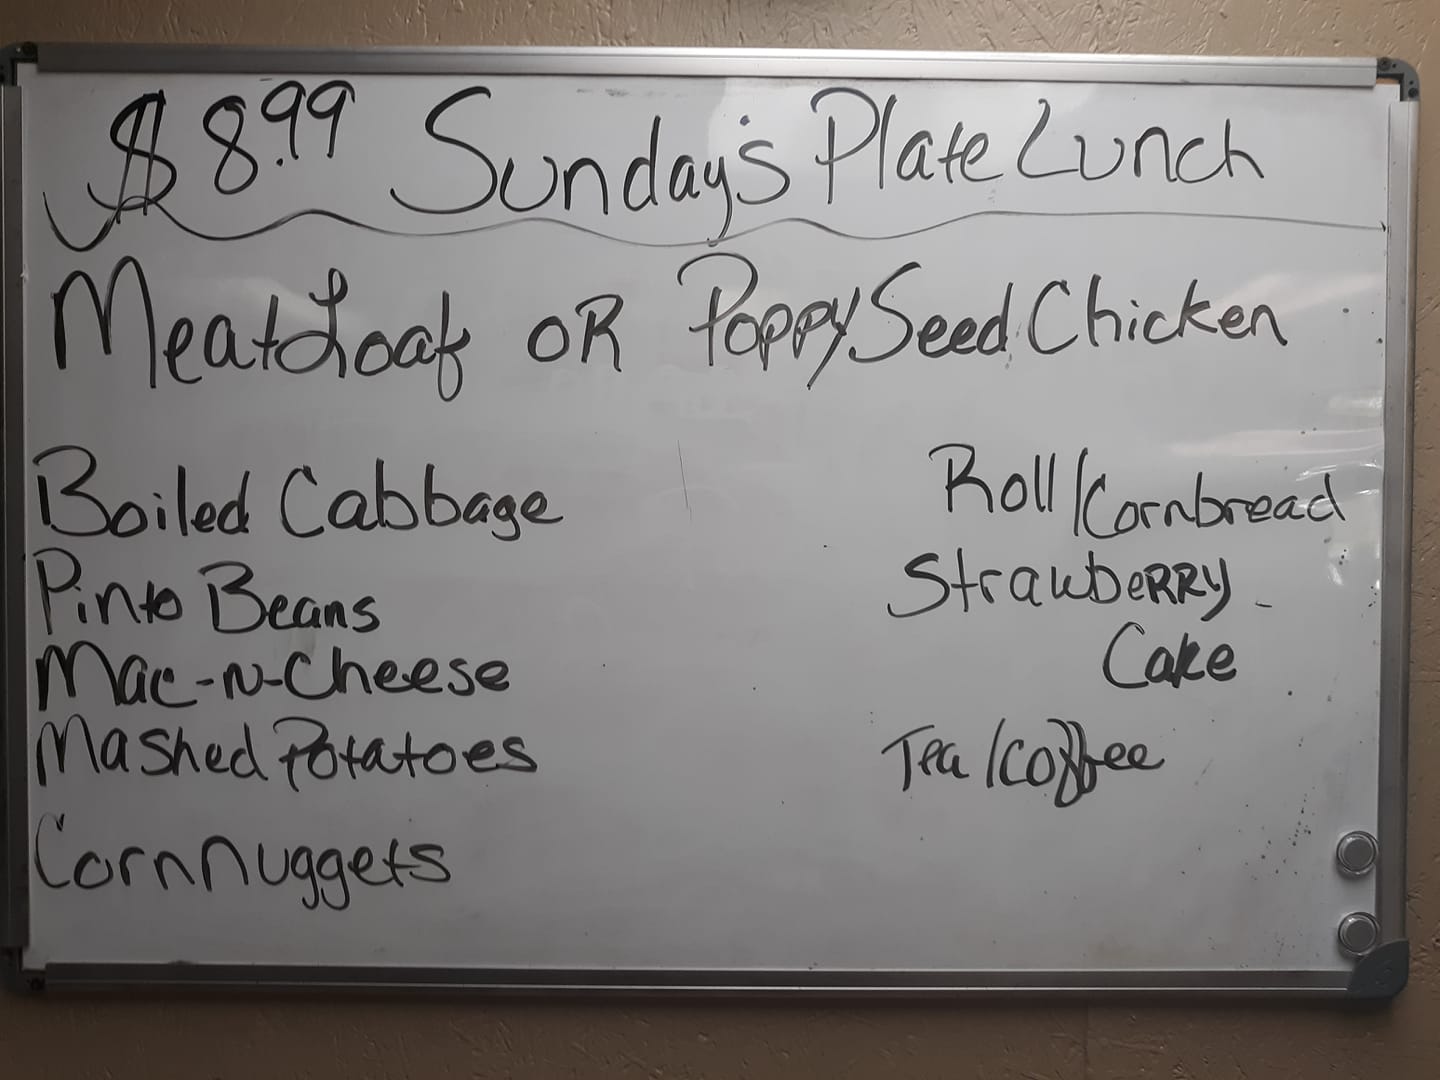 $8.99 Sunday's Plate Lunch
MeatLoaf OR Poppy Seed Chicken
Boiled Cabbage
Pinto Beans
Mac-N-Cheese
Mashed Potatoes
Corn Nuggets
Roll/Cornbread
Strawberry
Cake
Tea/Coffee